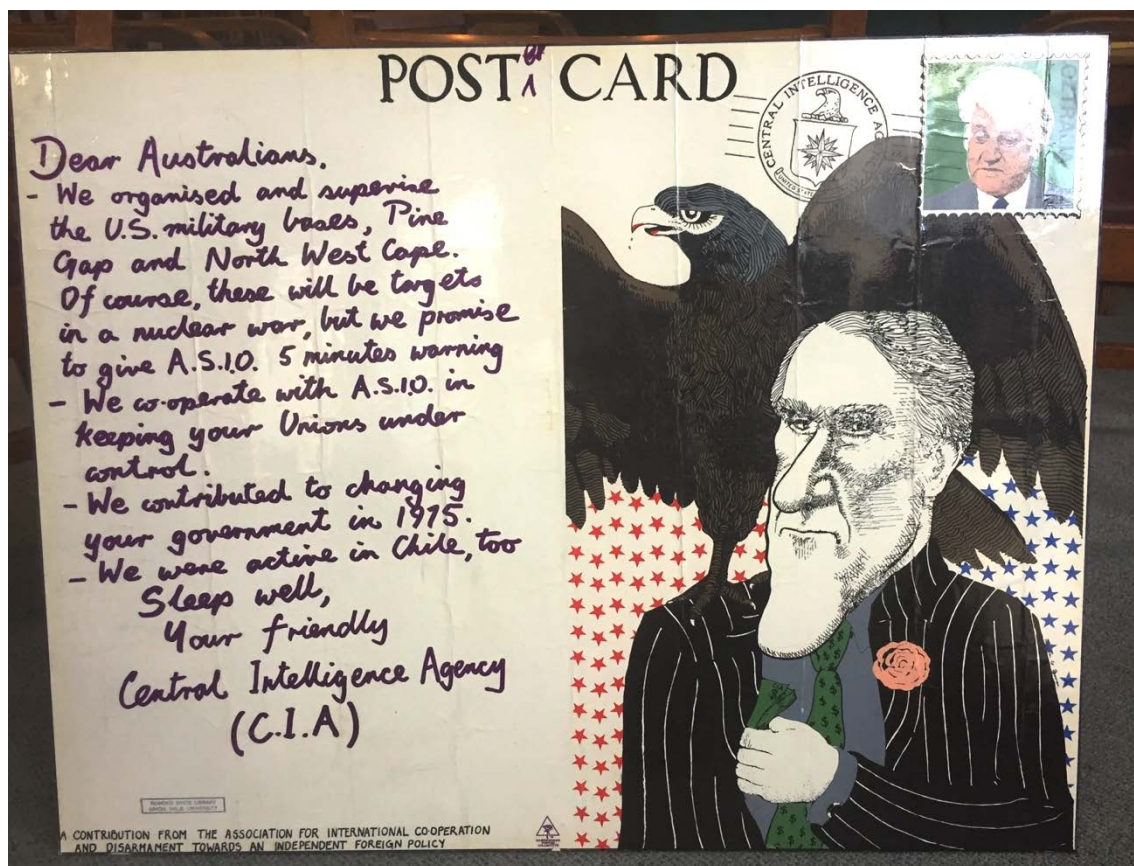 POST er CARD
CENTRAL INTELLIGENCE
UNITED STATES
Dear Australians,
- We organised and supervise
the U.S. military bases, Pine
Gap and North West Cape.
Of course, these will be targets
in a nuclear war, but we promise
to give A.S.I.O. 5 minutes warning
- We co-operate with A.S.I.O. in
keeping your Unions under
control.
- We contributed to changing
your government in 1975.
- We were active in Chile, too
Sleep well,
Your friendly
Central Intelligence Agency
(C.I.A)
A CONTRIBUTION FROM THE ASSOCIATION FOR INTERNATIONAL CO-OPERATION
AND DISARMAMENT TOWARDS AN INDEPENDENT FOREIGN POLICY